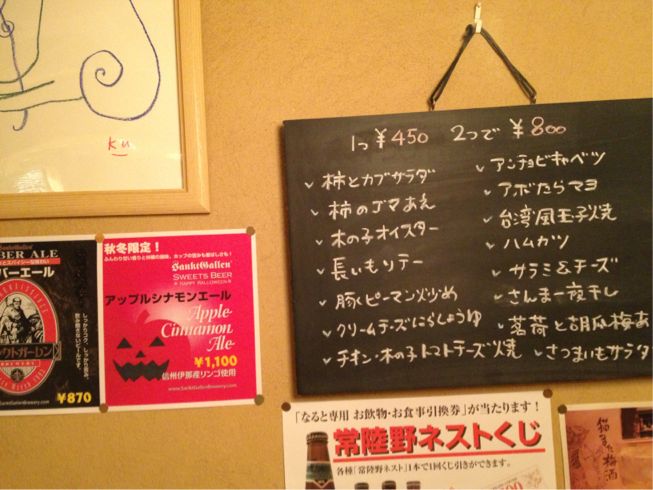 ku
1つ ¥450 2つで ¥800
柿とカブサラダ
柿のゴマあえ
木の子オイスター
長いもソテー
豚とピーマン炒め
クリームチーズにらしょうゆ
チキン・木の子トマトチーズ焼
アンチョビキャベツ
アボたらマヨ
台湾風玉子焼
ハムカツ
サラミ&チーズ
さんま一夜干し
茗荷と胡瓜梅あ
さつまいもサラダ
SanktGallen
BER ALE
バーエール
クトガーレン
¥870
秋冬限定!
SanktGallen
SWEETS BEER
HAPPY HALLOWEEN
アップルシナモンエール
Apple
Cinnamon
Ale
¥1,100
信州伊那産リンゴ使用
www.SanktGallenBrewery.com
「なると専用 お飲物・お食事引換券」が当たります!
常陸野ネストくじ
各種「常陸野ネスト」1本で1回くじ引きができます。
梅酒